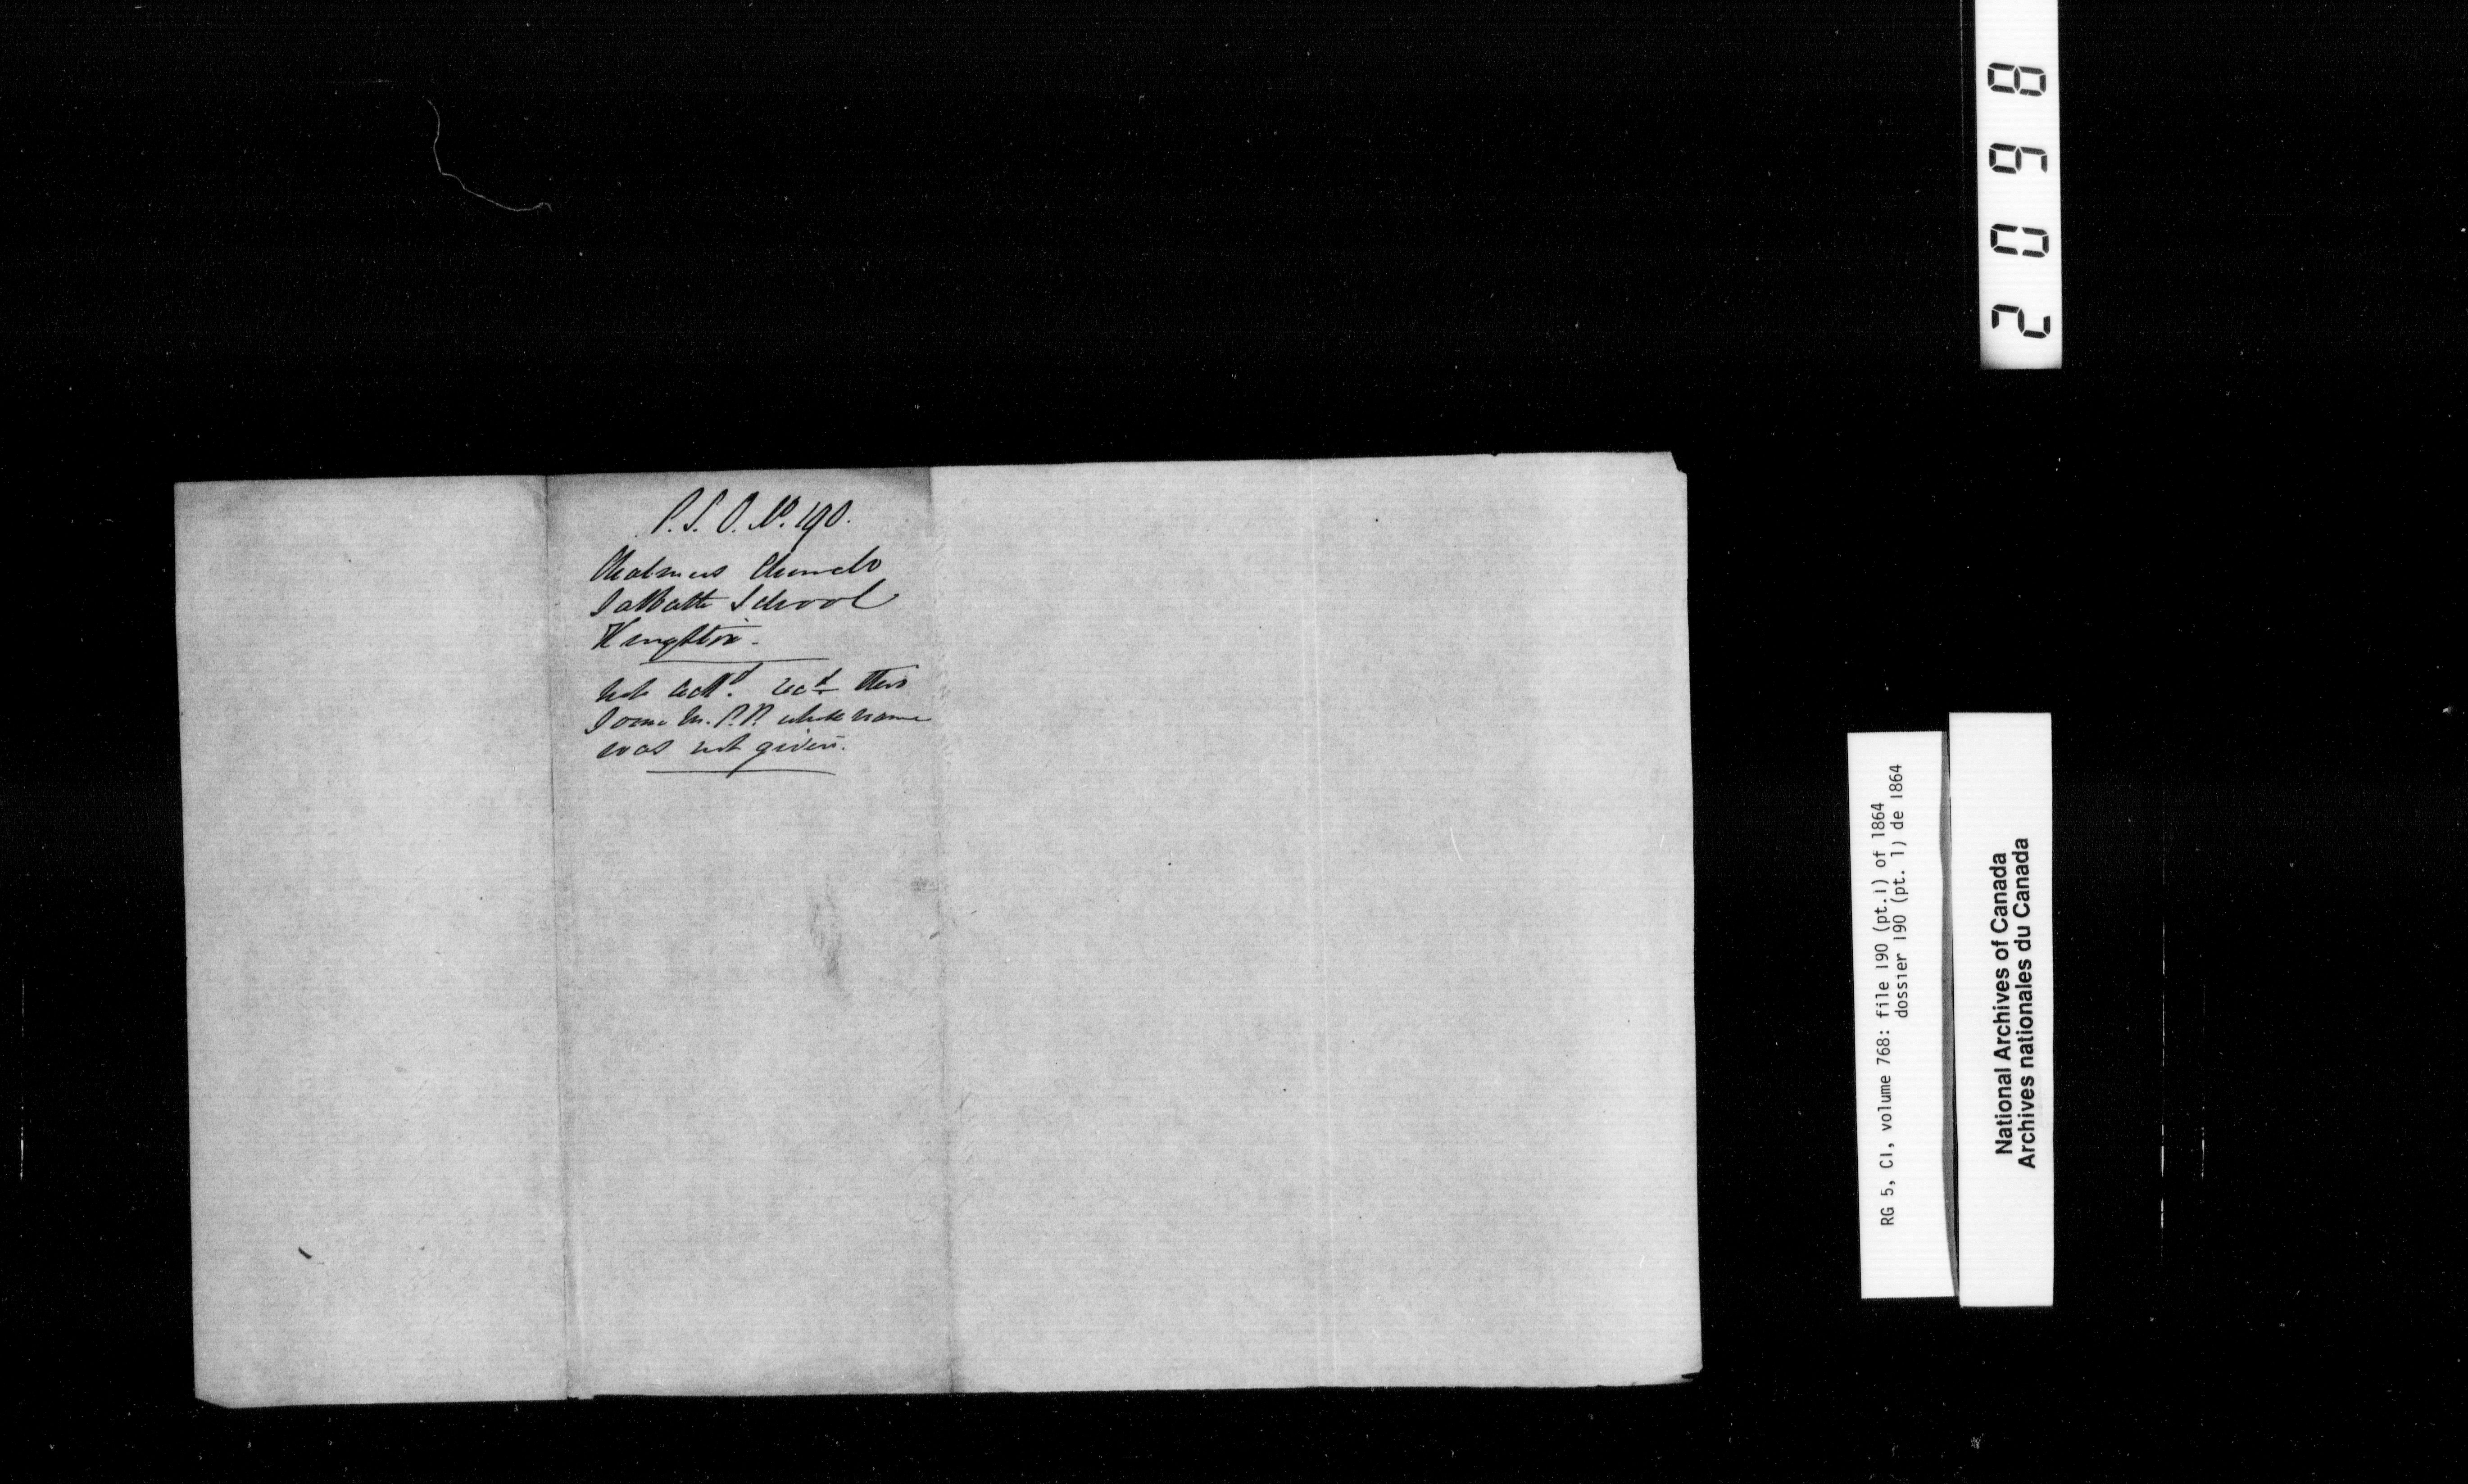 P.S.O. No. 190.
Chalmers Church
Sabbath School
Kingston.
Not ackd. recd thro
some M.P.P. whose name
was not given.
2098
RG 5, C1, volume 768: file 190 (pt.1) of 1864
dossier 190 (pt. 1) de 1864
National Archives of Canada
Archives nationales du Canada